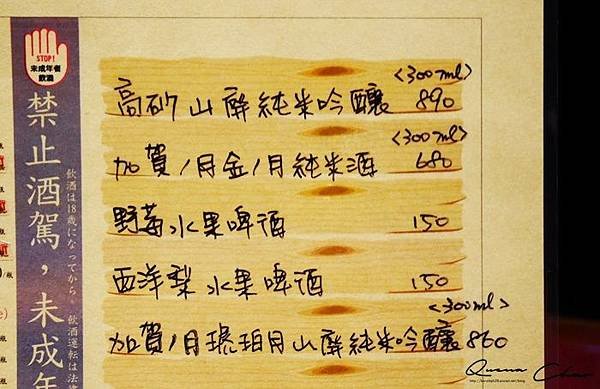 STOP!
未成年者
飲酒
禁止酒駕，未成年
飲酒は18歳になってから。飲酒運転は法律
<300ml>
高砂山廃純米吟釀 890
<300ml>
加賀ノ月金ノ月純米酒 680
野莓水果啤酒 150
西洋梨水果啤酒 150
<300ml>
加賀ノ月琥珀月山廃純米吟釀 860